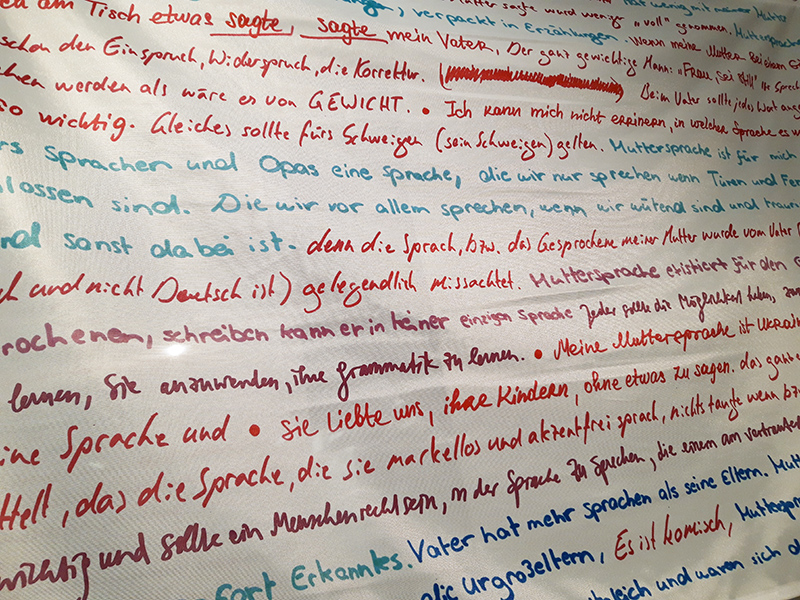 am Tisch etwas sagte, sagte mein Vater, Der ganz gewichtige Mann: „Frau, sei still"
verpackt in Erzählungen. Wenn meine Mutter bei einem
schon den Einspruch, Widerspruch, die Korrektur. Beim Vater sollte jedes Wort
werden als wäre es von GEWICHT. • Ich kann mich nicht erinnern, in welcher Sprache es
so wichtig. Gleiches sollte fürs Schweigen (sein Schweigen) gelten. Muttersprache ist für mich
Sprachen und Opas eine Sprache, die wir nur sprechen wenn Türen und
lossen sind. Die wir vor allem sprechen, wenn wir wütend sind und
sonst dabei ist. denn die Sprach, bzw. das Gesprochene meiner Mutter wurde vom Vater
und nicht Deutsch ist) gelegendlich missachtet. Muttersprache existiert für den
rochenen, schreiben kann er in keiner einzigen Sprache Jeder sollte die Möglichkeit haben,
lernen, Sie anzuwenden, ihre grammatik zu lernen. • Meine Muttersprache ist
ine Sprache und • Sie liebte uns, ihre Kindern, ohne etwas zu sagen. das
ttelt, das die Sprache, die sie markellos und akzentfrei sprach, nichts taugte wenn
wichtig und sollte ein Menschenrecht sein, in der Sprache zu Sprechen, die einem am
fort Erkanntes. Vater hat mehr sprachen als seine Eltern.
die urgroßeltern, Es ist komisch,
und waren sich